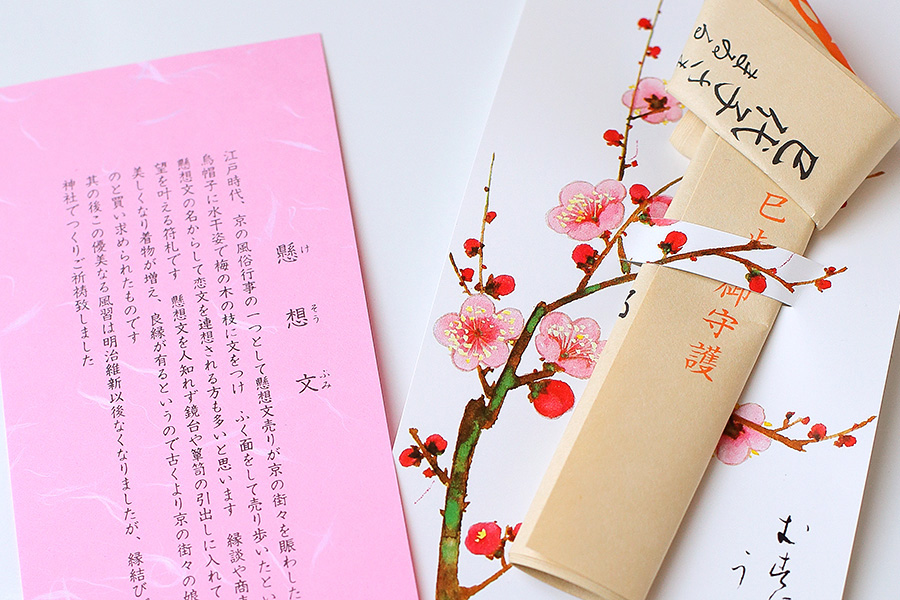 懸想文
けそうふみ
江戸時代、京の風俗行事の一つとして懸想文売りが京の街々を賑わした
烏帽子に水干姿で梅の木の枝に文をつけ　ふく面をして売り歩いたとい
懸想文の名からして恋文を連想される方も多いと思います　縁談や商
望を叶える符札です　懸想文を人知れず鏡台や箪笥の引出しに入れて
美しくなり着物が増え、良縁が有るというので古くより京の街々の娘
のと買い求められたものです
其の後この優美なる風習は明治維新以後なくなりましたが、縁結び
神社でつくりご祈祷致しました
巳 御守護